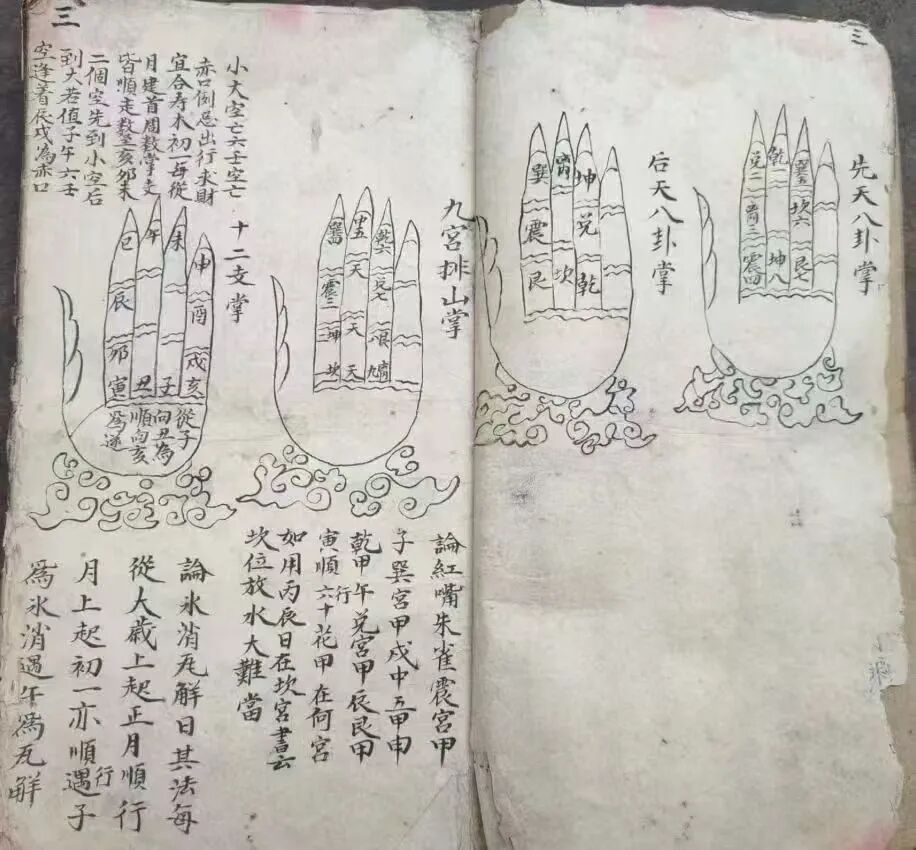 三
先天八卦掌
兑二
離三
震四
乾一
坤八
巽五
坎六
艮七
后天八卦掌
巽
震
艮
離
坎
坤
兑
乾
三
九宫排山掌
巽四
震三
二坤
坎
中五
天
天
天
乾六
兑七
八艮
九離
小大空亡六壬空亡
赤口例忌出行求財
宜合寿木初一每從
月建首周数掌支
皆順走数至亥卯未
二個空先到小空后
到大若值子午六壬
空逢着辰戌為赤口
十二支掌
巳
辰
卯
寅
午
丑
未
子
申
酉
戌
亥
從子
向丑為
順向亥
為逆
論紅嘴朱雀震宮甲
子巽宮甲戌中五甲申
乾甲午兑宮甲辰艮甲
寅順行六十花甲在何宮
如用丙辰日在坎宮書云
坎位放水大難當
論氷消瓦解日其法每
從大歲上起正月順行
月上起初一亦順行遇子
為氷消遇午為瓦解